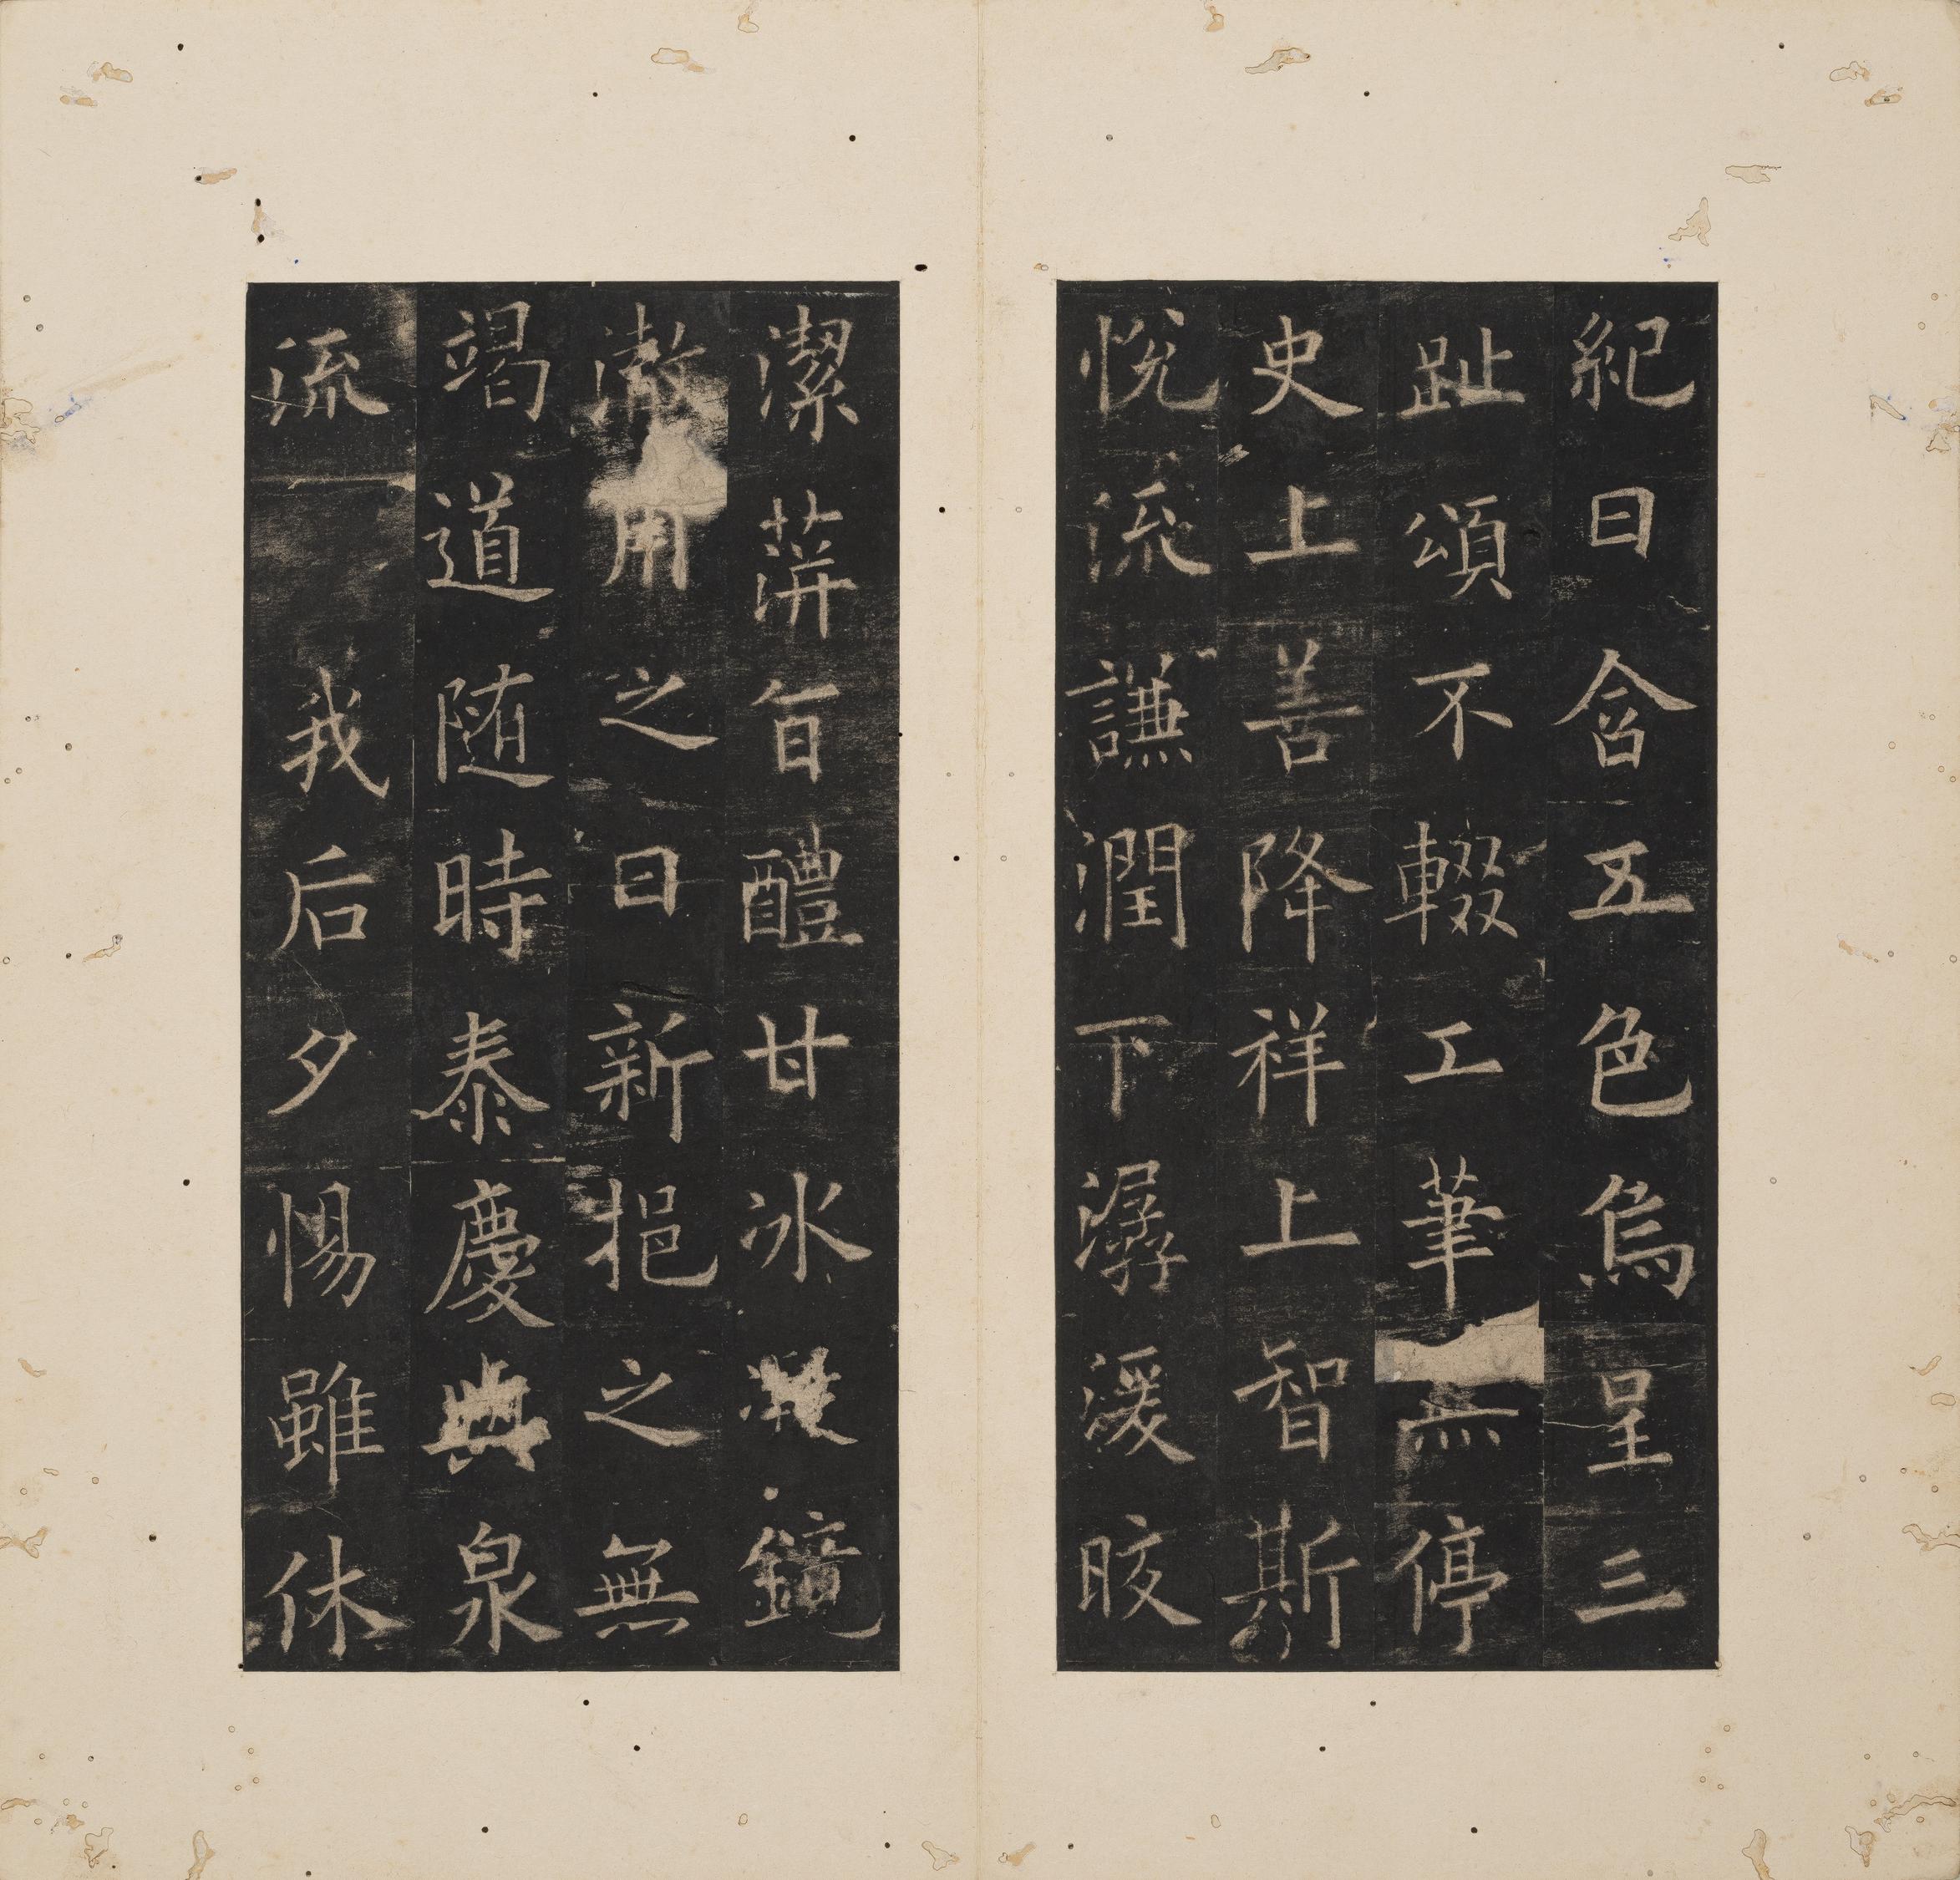 紀曰含五色烏呈三
趾頌不輟工筆無停
史上善降祥上智斯
悅流謙潤下潺湲皎
潔蓱旨醴甘冰凝鏡
澈用之日新挹之無
竭道随時泰慶與泉
流我后夕惕雖休